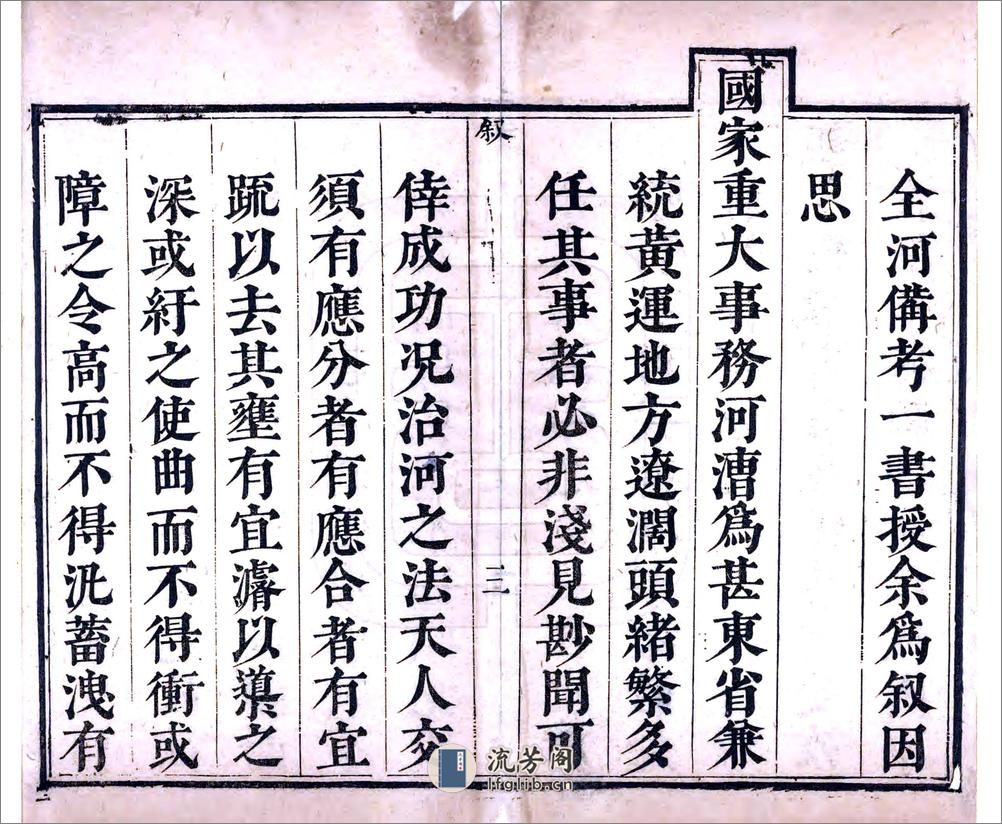 全河備考一書授余爲叙因
思
國家重大事務河漕爲甚東省兼
統黃運地方遼濶頭緒繁多
任其事者必非淺見尠聞可
叙
二
倖成功况治河之法天人交
須有應分者有應合者有宜
疏以去其壅有宜濬以導之
深或紆之使曲而不得衝或
障之令高而不得汎蓄洩有
流芳阁
lfglib.cn